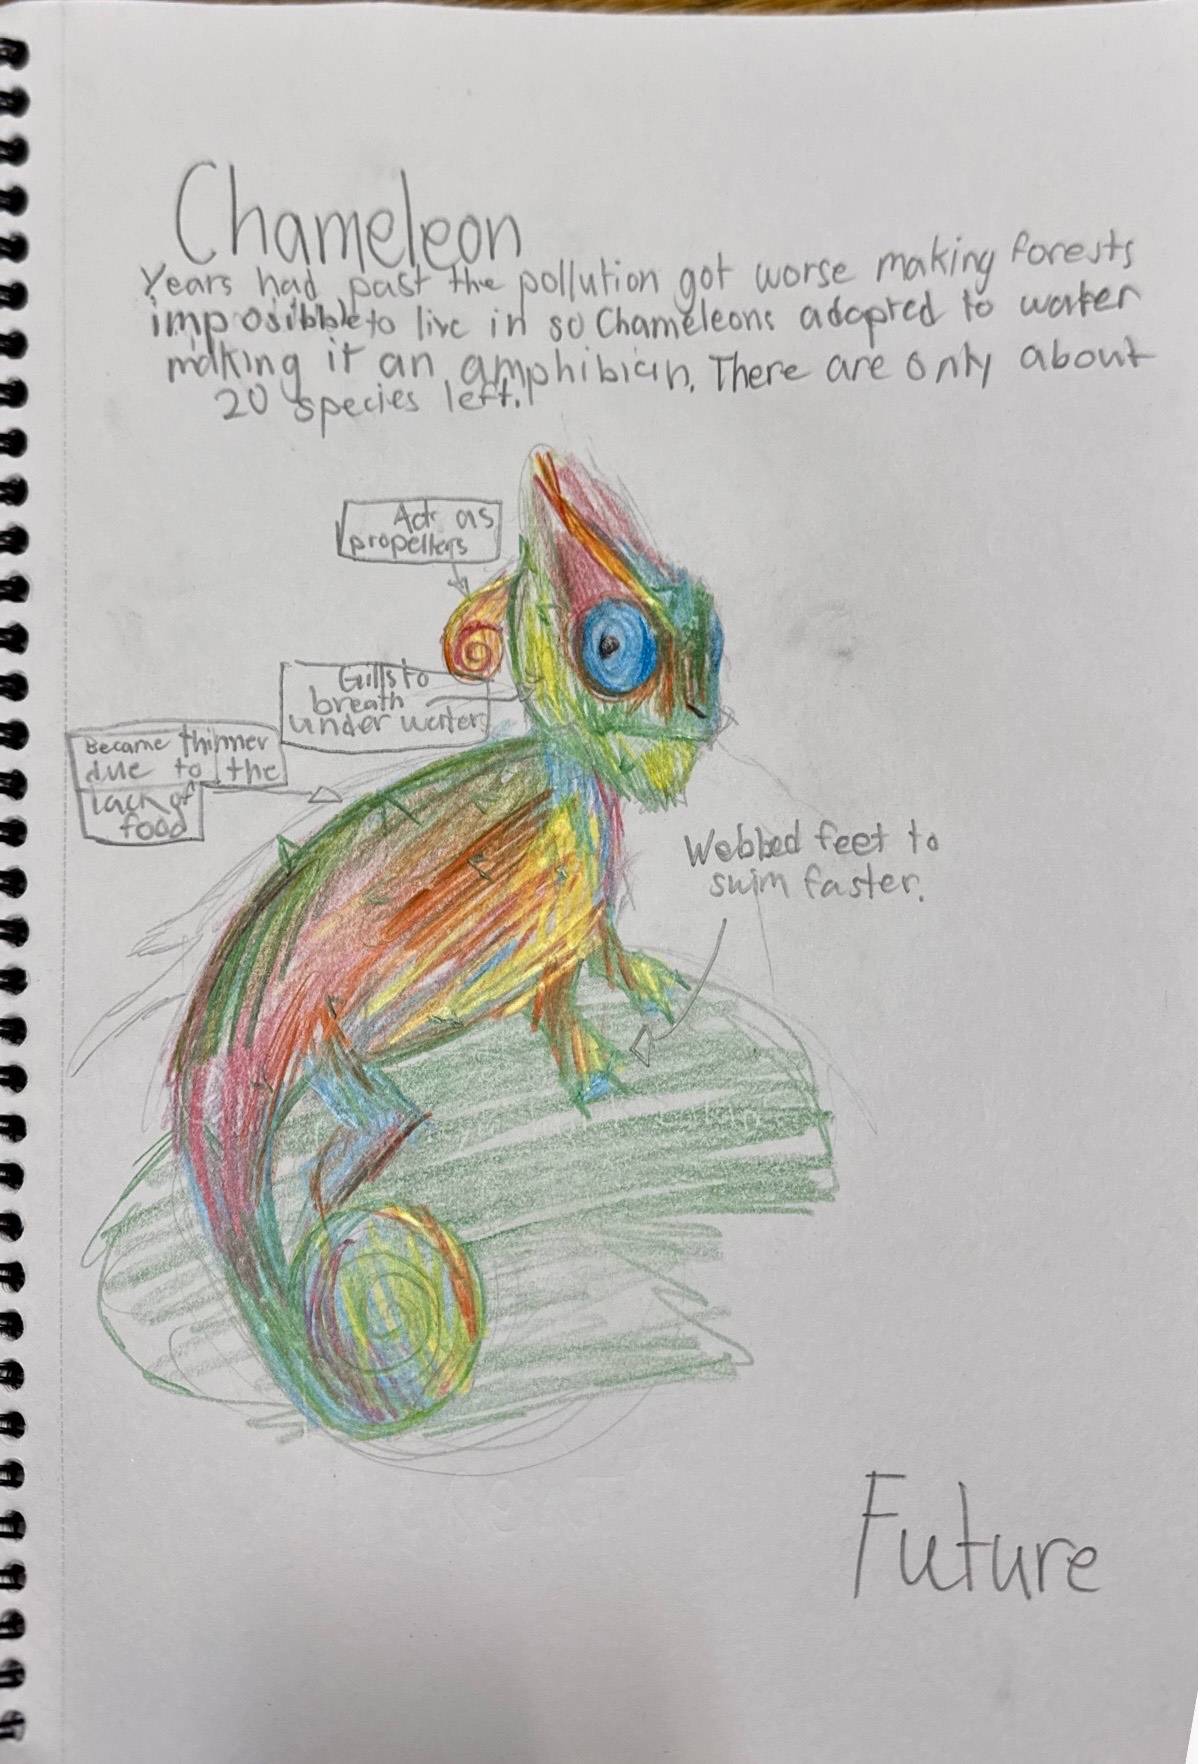 Chameleon
Years had past the pollution got worse making forests
imposibble to live in so Chameleons adapted to water
making it an amphibian. There are only about
20 species left.
Act as
propellers
Gills to
breath
under water
Became thinner
due to the
lack of
food
Webbed feet to
swim faster.
Future